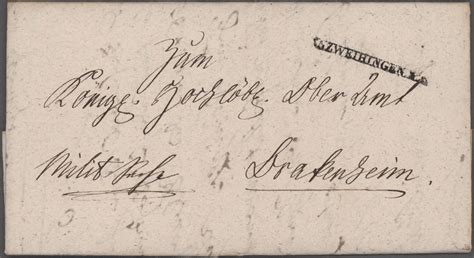 ENZWEIHINGEN.
Zum
Königl. Hochlöbl. Ober Amt
Milit. Sache
Brakenheim.